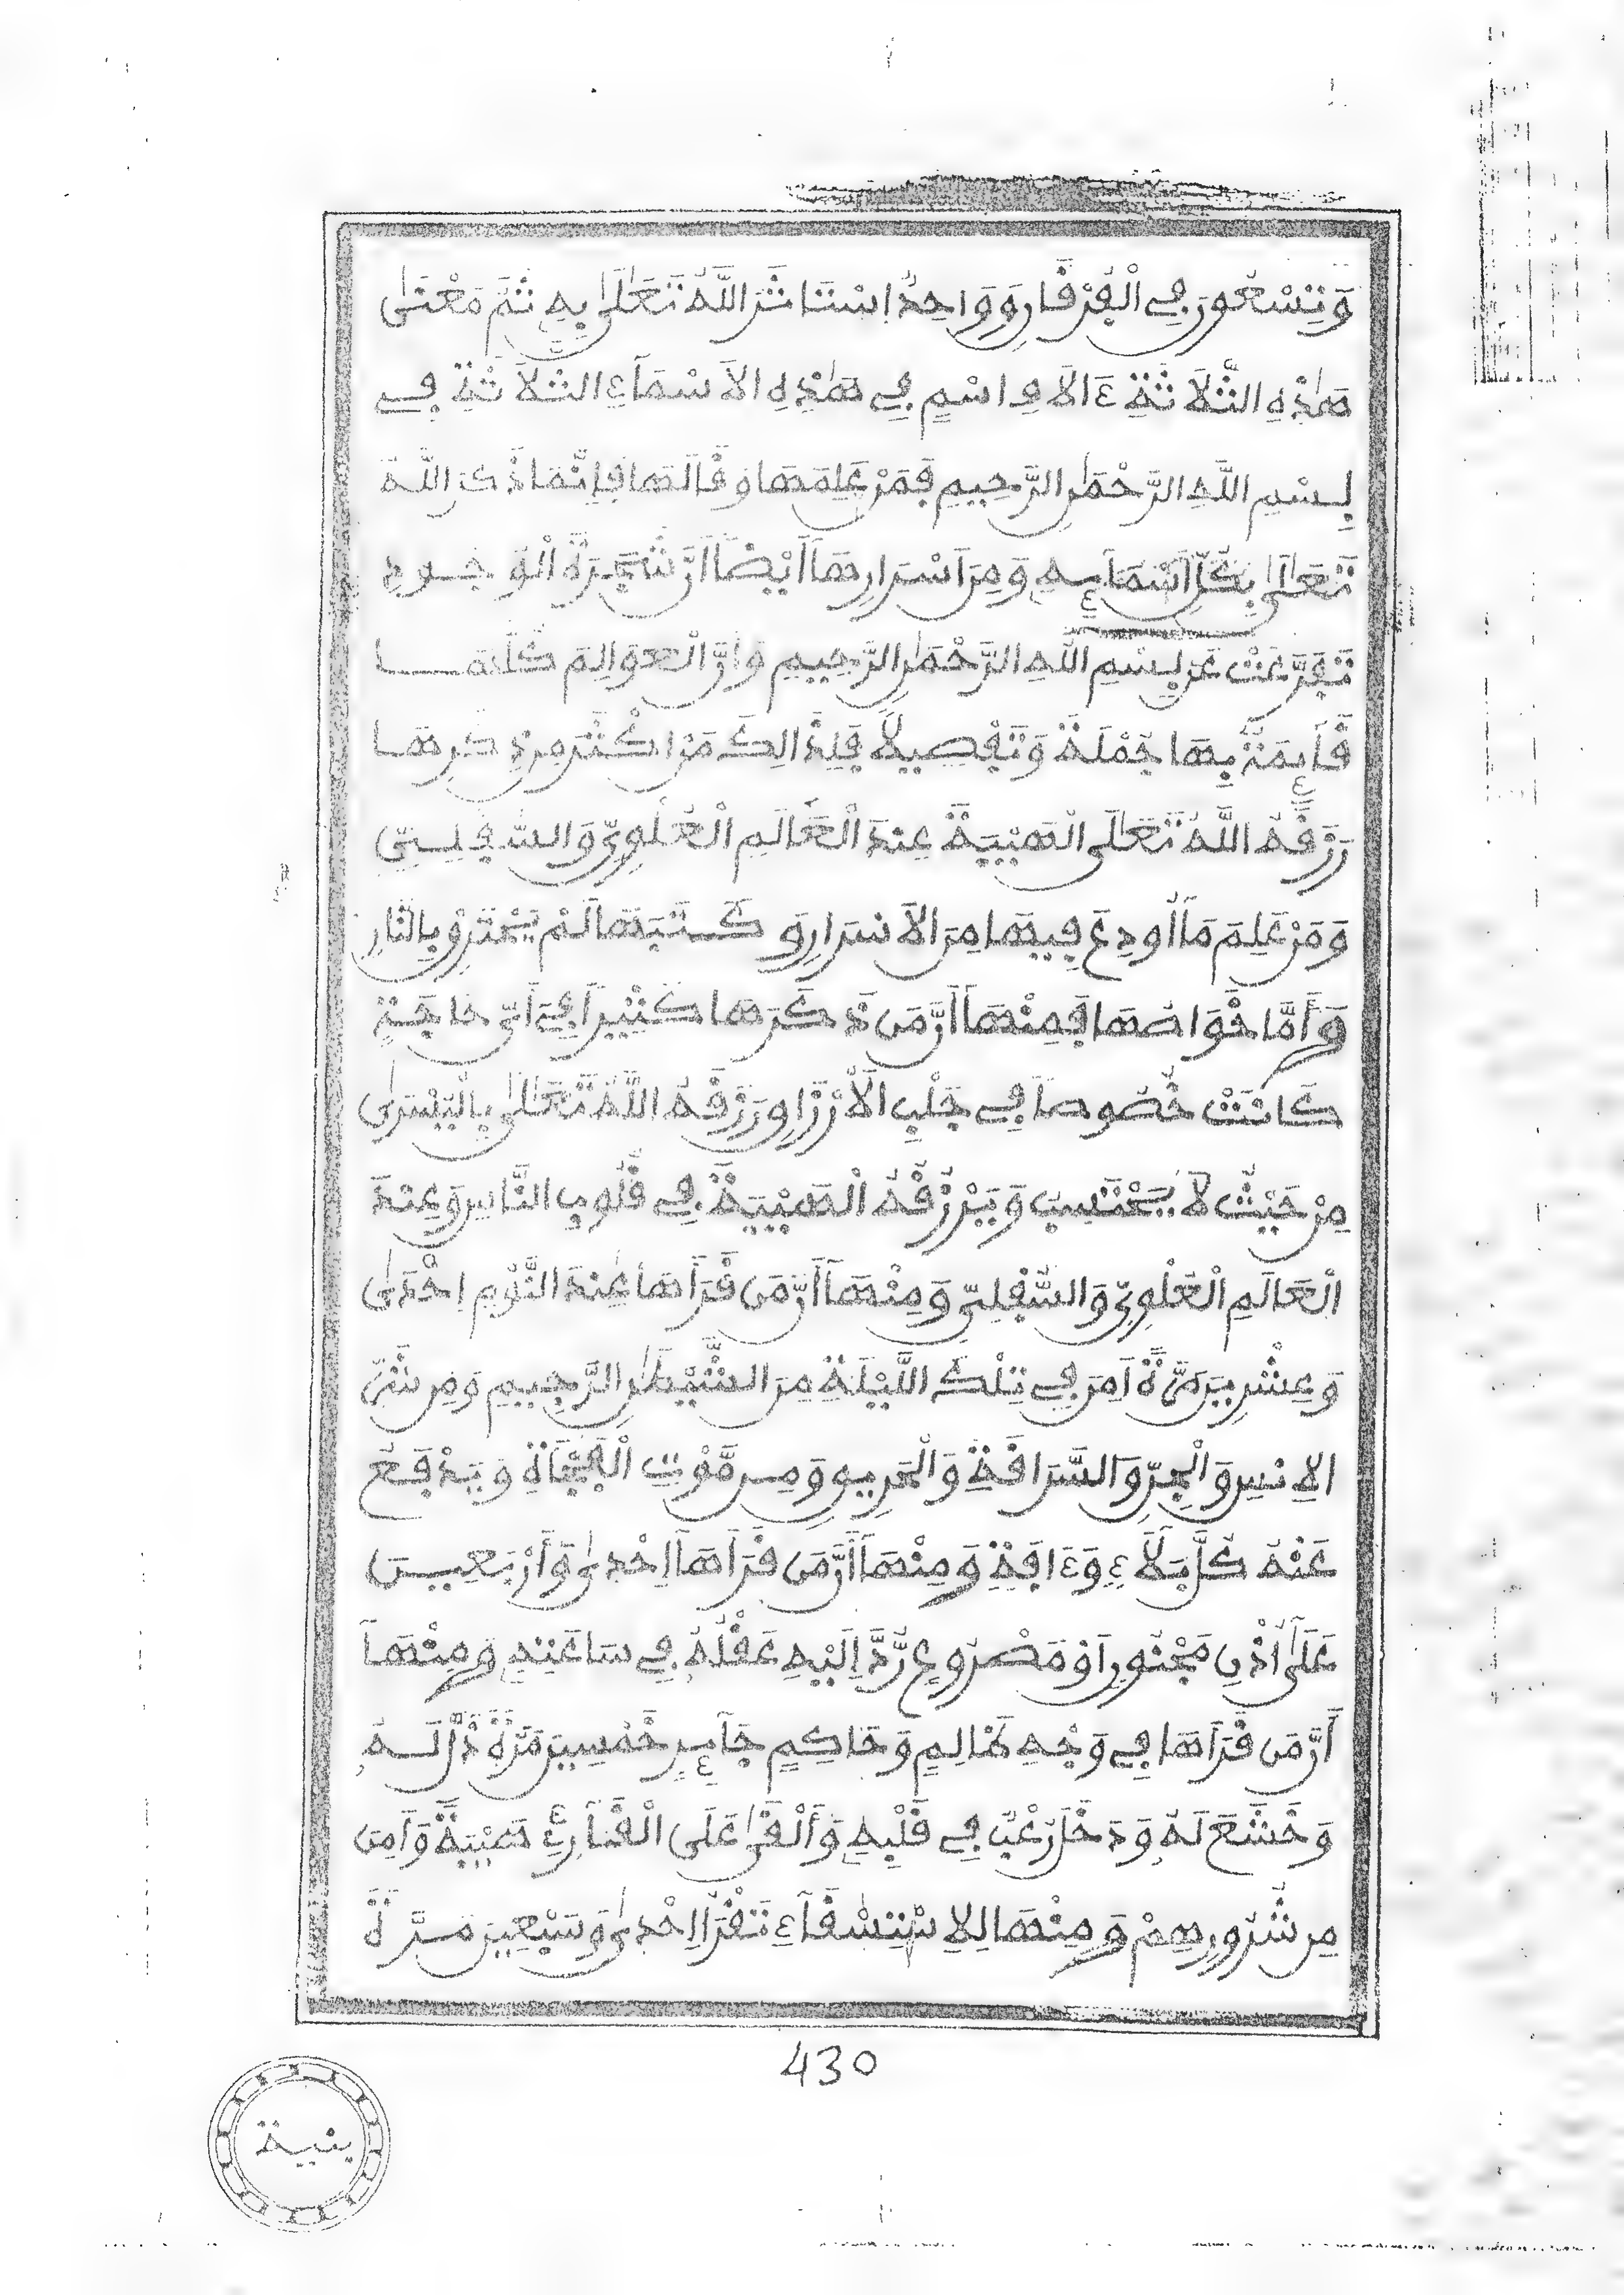 وَتِسْعُونَ فِي الْفُرْقَانِ وَوَاحِدٌ اِسْتَاثَرَ اللَّهُ تَعَالَىٰ بِهِ ثُمَّ مَعْنَىٰ
هَٰذِهِ الثَّلَاثَةِ ءَالَافِ اسْمٍ فِي هَٰذِهِ الَاسْمَآءِ الثَّلَاثَةِ فِي
بِسْمِ اللَّهِ الرَّحْمَٰنِ الرَّحِيمِ فَمَنْ عَلِمَهَا وَقَالَهَا فَإِنَّمَا ذَكَرَ اللَّهَ
تَعَالَىٰ بِكُلِّ أَسْمَآئِهِ وَمِنَ اَسْرَارِهَآ أَيْضًا أَنَّ شَجَرَةَ الْوُجُودِ
تَفَرَّعَتْ عَن بِسْمِ اللَّهِ الرَّحْمَٰنِ الرَّحِيمِ وَأَنَّ الْعَوَالِمَ كُلَّهَا
قَآئِمَةٌ بِهَا جُمْلَةً وَتَفْصِيلًا فَلِذَالِكَ مَنْ اَكْثَرَ مِن ذِكْرِهَا
رَزَقَهُ اللَّهُ تَعَالَى الْهَيْبَةَ عِنْدَ الْعَالَمِ الْعُلْوِيِّ وَالسُّفْلِيِّ
وَمَنْ عَلِمَ مَآ أُودِعَ فِيهَا مِنَ الَاسْرَارِ وَكَتَبَهَا لَمْ يَحْتَرِقْ بِالنَّارِ
وَأَمَّا خَوَاصُّهَا فَمِنْهَآ أَنَّ مَن ذَكَرَهَا كَثِيراً فِي أَيِّ حَاجَةٍ
كَانَتْ خُصُوصاً فِي جَلْبِ الَارْزَاقِ رَزَقَهُ اللَّهُ تَعَالَىٰ بِالْيُسْرَىٰ
مِنْ حَيْثُ لَا يَحْتَسِبُ وَيَرْزُقُهُ الْهَيْبَةَ فِي قُلُوبِ النَّاسِ وَعِنْدَ
الْعَالَمِ الْعُلْوِيِّ وَالسُّفْلِيِّ وَمِنْهَآ أَنَّ مَن قَرَأَهَا عِنْدَ النَّوْمِ اِحْدَىٰ
وَعِشْرِينَ مَرَّةً اَمِنَ فِي تِلْكَ اللَّيْلَةِ مِنَ الشَّيْطَٰنِ الرَّجِيمِ وَمِن شَرِّ
الِانسِ وَالْجِنِّ وَالسَّرَاقَةِ وَالْحَرِيقِ وَمِن مَّوْتِ الْفُجَاةِ وَيَدْفَعُ
عَنْهُ كُلَّ بَلَآءٍ وَءَافَةٍ وَمِنْهَآ أَنَّ مَن قَرَأَهَآ إِحْدَىٰ وَأَرْبَعِينَ
عَلَىٰ أُذْنِ مَجْنُونٍ اَوْ مَصْرُوعٍ رُدَّ إِلَيْهِ عَقْلُهُ فِي سَاعَتِهِ وَمِنْهَآ
أَنَّ مَن قَرَأَهَا فِي وَجْهِ ظَالِمٍ وَحَاكِمٍ جَآئِرٍ خَمْسِينَ مَرَّةً ذَلَّ لَهُ
وَخَشَعَ لَهُ وَدَخَلَ رُعْبٌ فِي قَلْبِهِ وَأَلْقَىٰ عَلَى الْقَارِئِ هَيْبَةً وَاَمِنَ
مِن شُرُورِهِمْ وَمِنْهَا لِلِاسْتِسْقَآءِ تَقْرَأُ اِحْدَىٰ وَسَبْعِينَ مَرَّةً
430